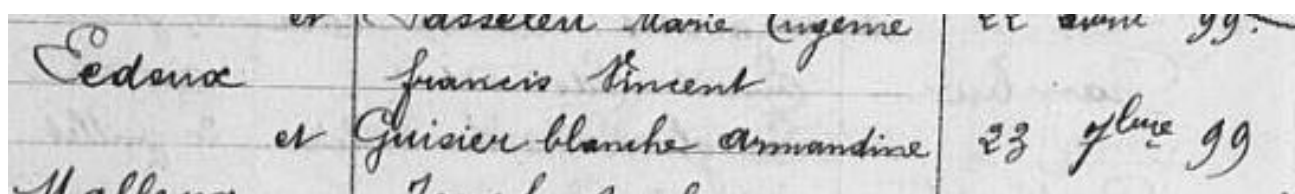 et Vasseleu Marie Eugénie 22 avril 99.
Ledoux francis Vincent
et Guisier blanche armandine 23 7bre 99